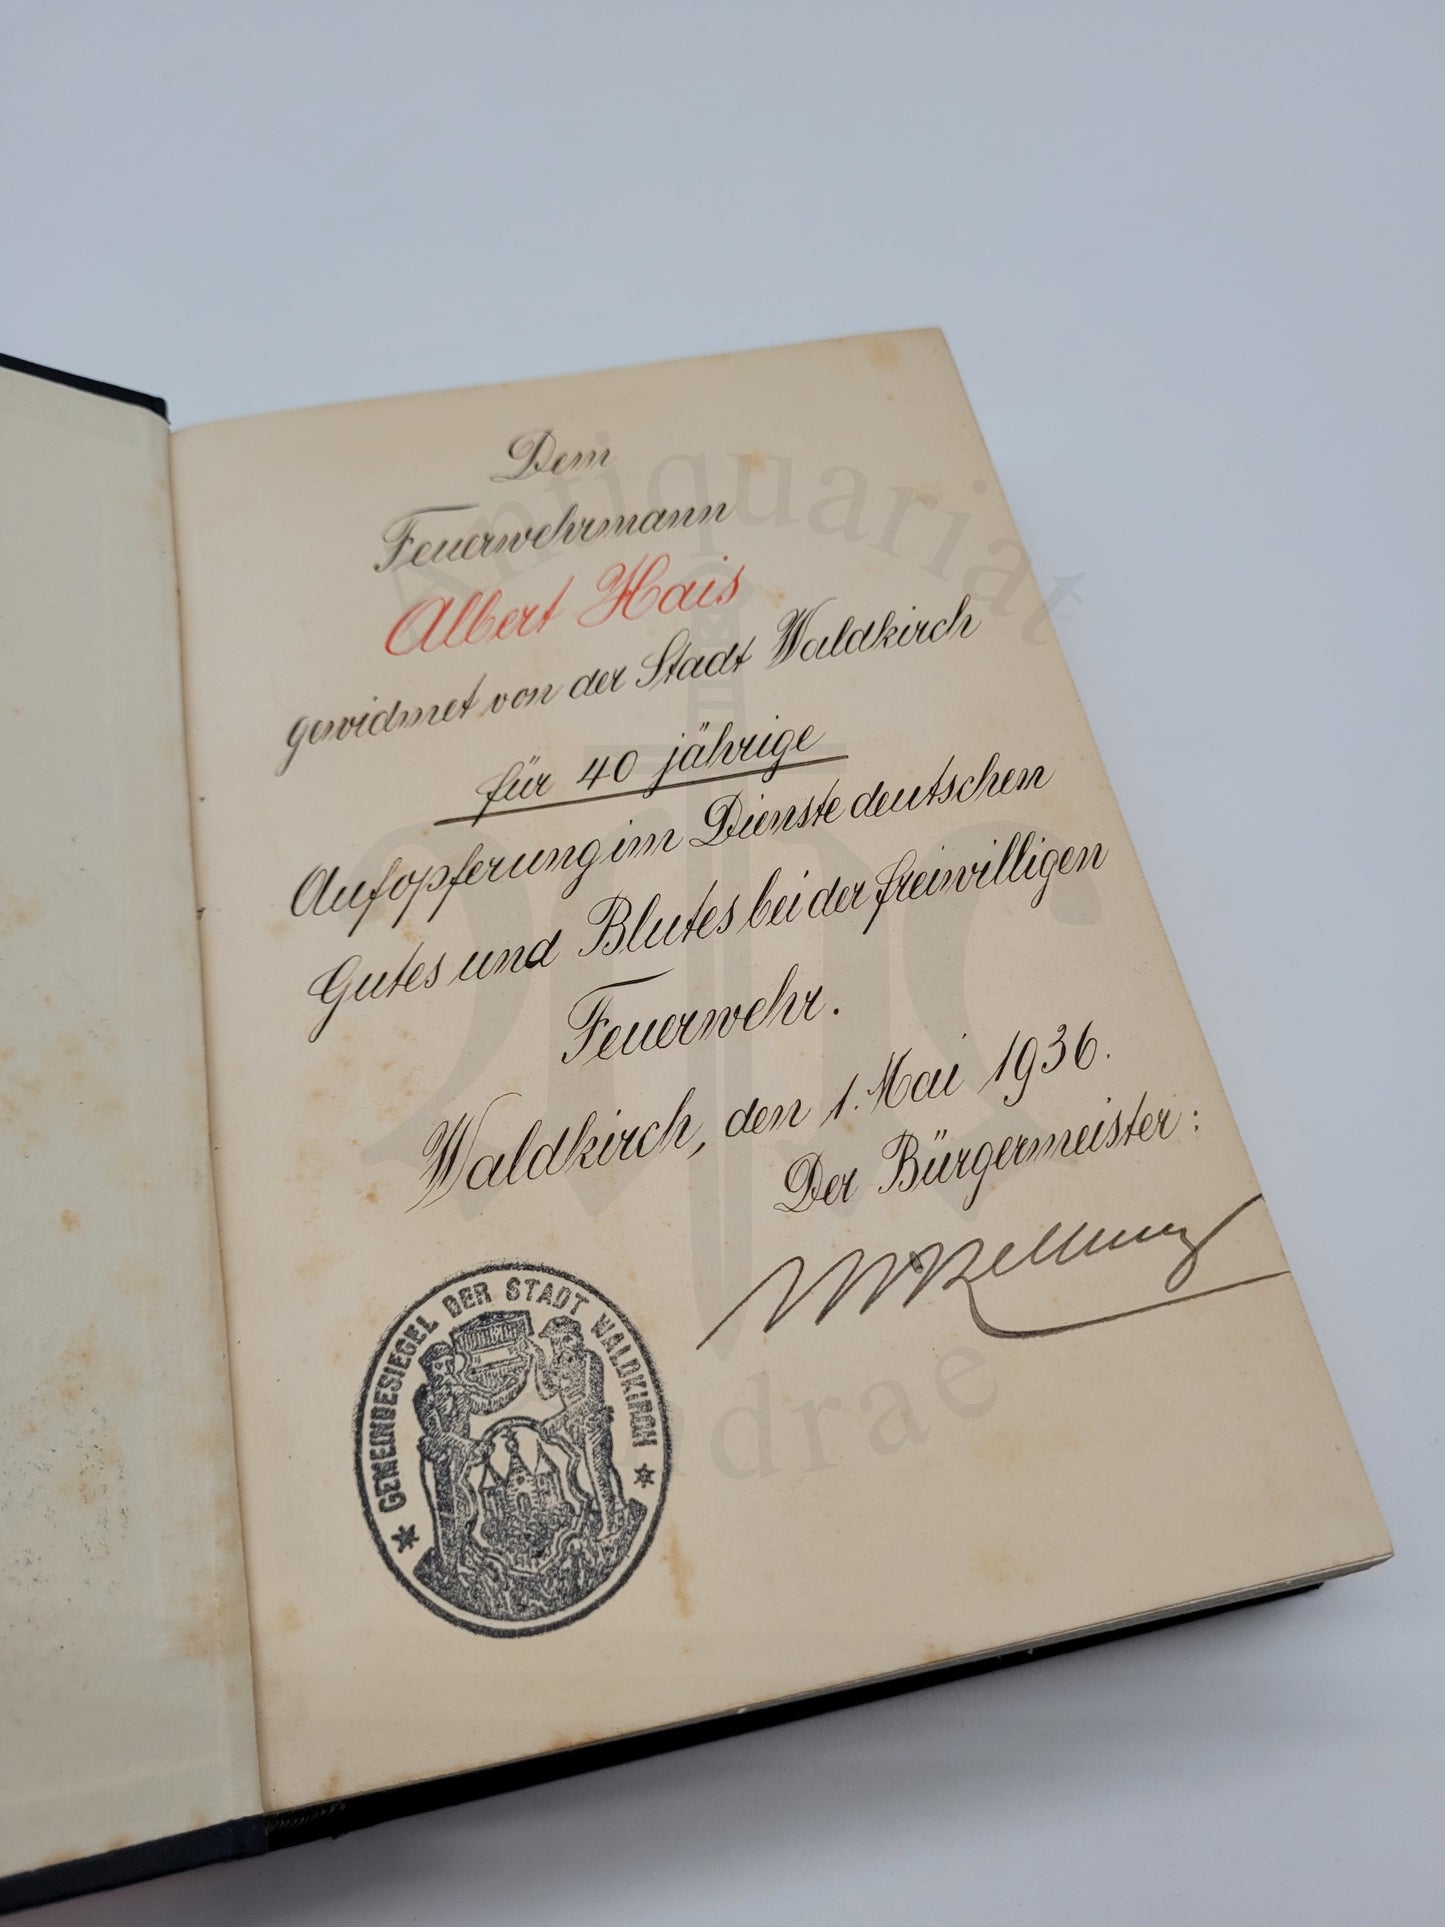 Dem
Feuerwehrmann
Albert Hais
gewidmet von der Stadt Waldkirch
für 40 jährige
Aufopferung im Dienste deutschen
Gutes und Blutes bei der freiwilligen
Feuerwehr.
Waldkirch, den 1. Mai 1936.
Der Bürgermeister:
GEMEINDESIEGEL DER STADT WALDKIRCH
Antiquariat
Andrae